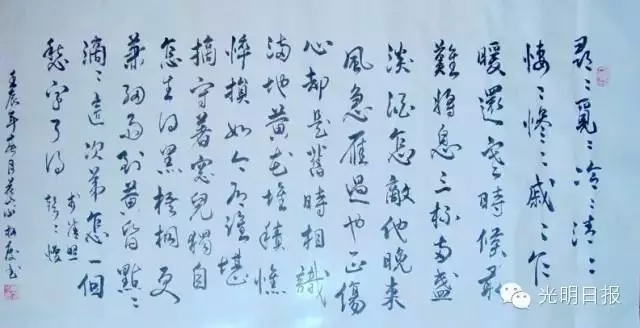 尋〻覓〻冷〻清〻
悽〻慘〻戚〻乍
暖還寒時候最
難將息三杯兩盞
淡酒怎敵他晚來
風急雁過也正傷
心却是舊時相識
滿地黄花堆積憔
悴損如今有誰堪
摘守著窗兒獨自
怎生得黑梧桐更
兼細雨到黄昏點〻
滴〻這次第怎一個
愁字了得
李清照
聲〻慢
壬辰年
光明日报